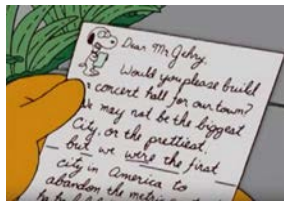 Dear Mr Gehry,
Would you please build
concert hall for our town?
may not be the biggest
City, or the prettiest.
but we were the first
city in America to
abandon the metric